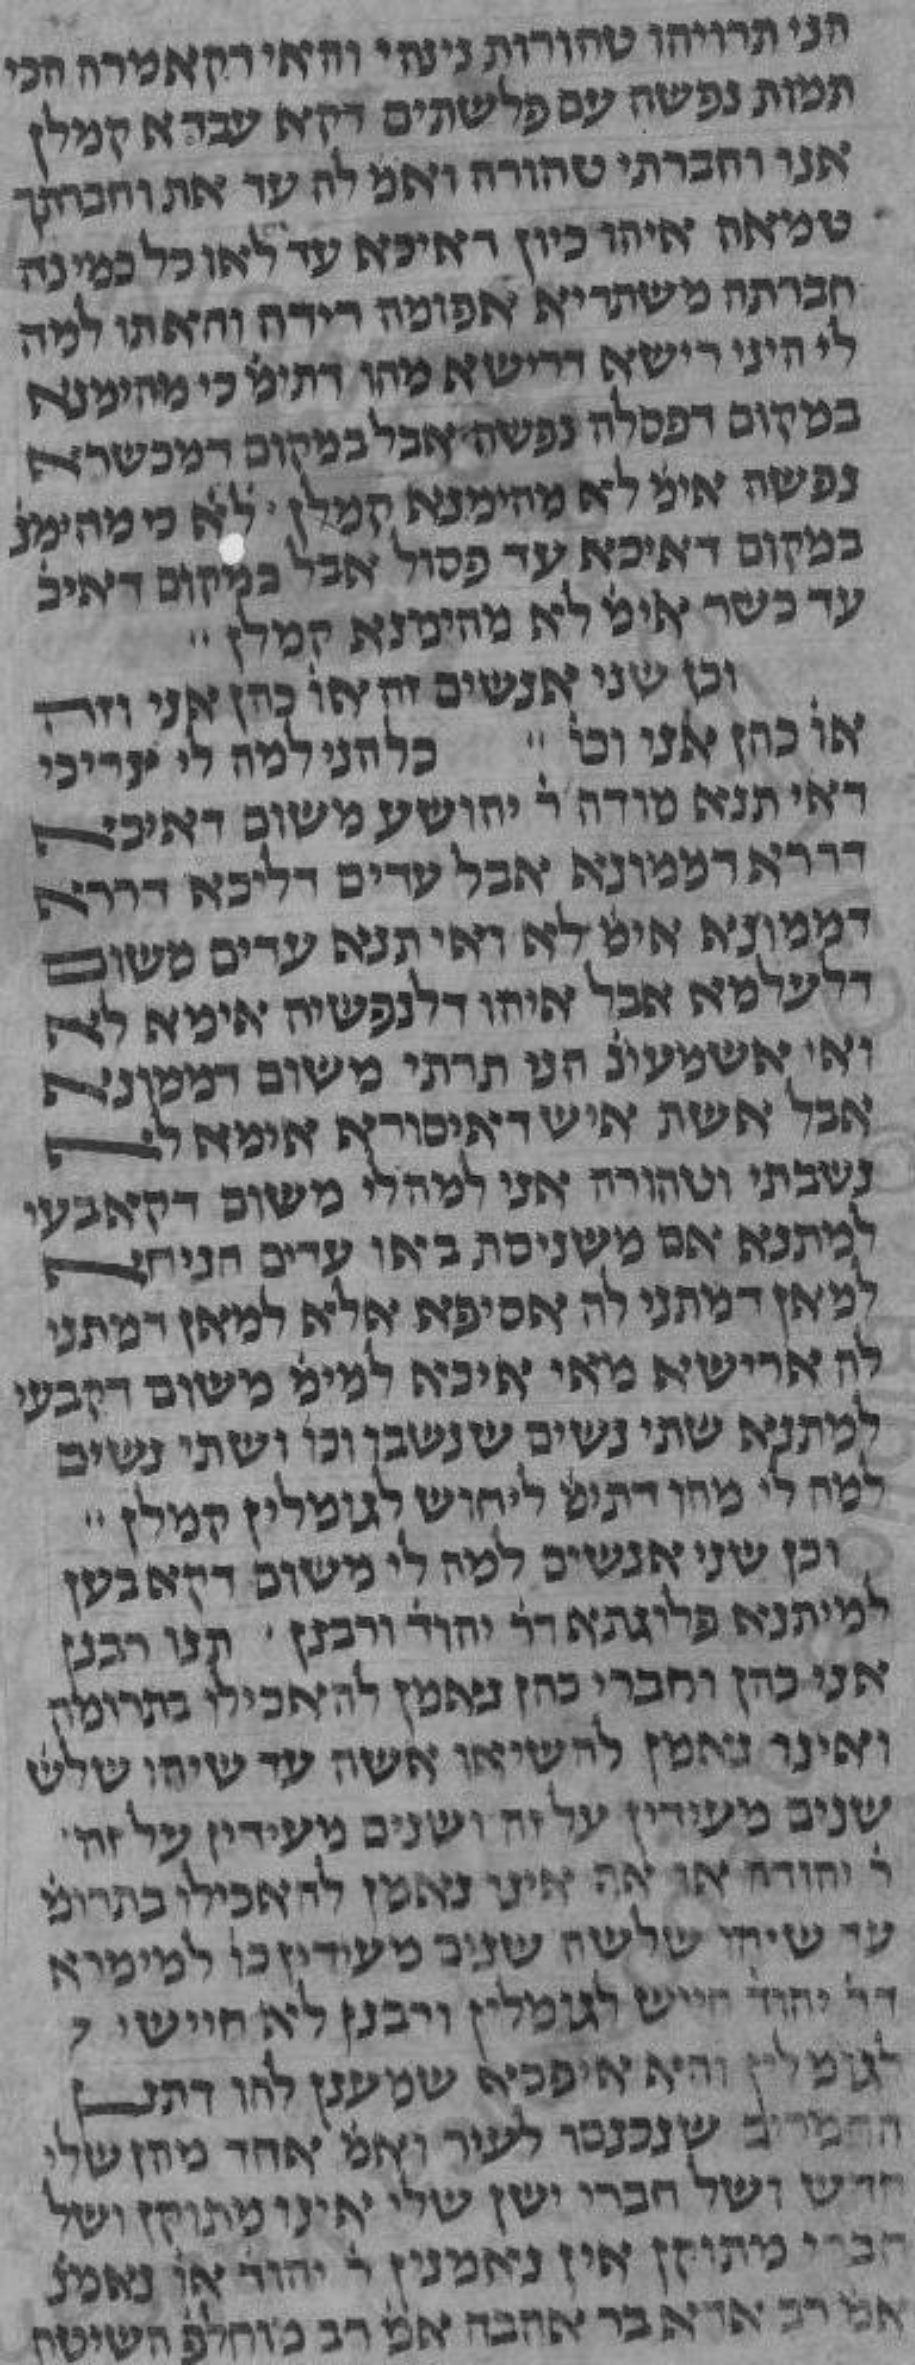 הני תרויהו טהורות נינהי והאי דקאמרה הכי
תמות נפשה עם פלשתים דקא עבדא קמלן
אנו וחברתי טהורה ואמ׳ לה עד את וחברתך
טמאה איהו כיון דאיכא עד לאו כל כמינה
חברתה משתריא אפומה דידה והאתו למה
לי היני רישא דרישא מהו דתימ׳ כי מהימנא
במקום דפסלה נפשה אבל במקום דמכשרא
נפשה אימ׳ לא מהימנא קמלן ׳ ל׳א׳ כי מהימנ׳
במקום דאיכא עד פסול אבל במקום דאיכ׳
עד כשר אימ׳ לא מהימנא קמלן ״
וכן שני אנשים זה או׳ כהן אני וזה
או׳ כהן אני וכו׳ ״ כל הני למה לי צריכי
דאי תנא מודה ר׳ יהושע משום דאיכא
דררא דממונא אבל עדים דליכא דררא
דממונא אימ׳ לא ואי תנא עדים משום
דלעלמא אבל איהו דלנפשיה אימא לא
ואי אשמעינ׳ הני תרתי משום דממונא
אבל אשת איש דאיסורא אימא לא
נשבתי וטהורה אני למה לי משום דקא בעי
למתנא אם משניסת באו עדים הניחא
למאן דמתני לה אסיפא אלא למאן דמתני
לה ארישא מאי איכא למימ׳ משום דקבעי
למתנא שתי נשים שנשבו וכו׳ ושתי נשים
למה לי מהו דתימ׳ ליחוש לגומלין קמלן ״
וכן שני אנשים למה לי משום דקא בען
למיתנא פלוגתא דר׳ יהוד׳ ורבנן ׳ תנו רבנן
אני כהן וחברי כהן נאמן להאכילו בתרומה
ואינו נאמן להשיאו אשה עד שיהו שלש׳
שנים מעידין על זה ושנים מעידין על זה׳
ר׳ יהודה או׳ אף אינו נאמן להאכילו בתרומ׳
עד שיהו שלשה שנים מעידין כו׳ למימרא
דר׳ יהוד׳ חייש לגומלין ורבנן לא חיישי
לגומלין והא איפכא שמענן להו דתנן
החמרים שנכנסו לעיר ואמ׳ אחד מהן שלי
חדש ושל חברי ישן שלי אינו מתוקן ושל
חברי מתוקן אין נאמנין ר׳ יהוד׳ או׳ נאמנ׳
אמ׳ רב אדא בר אהבה אמ׳ רב מוחלפ׳ השיטה